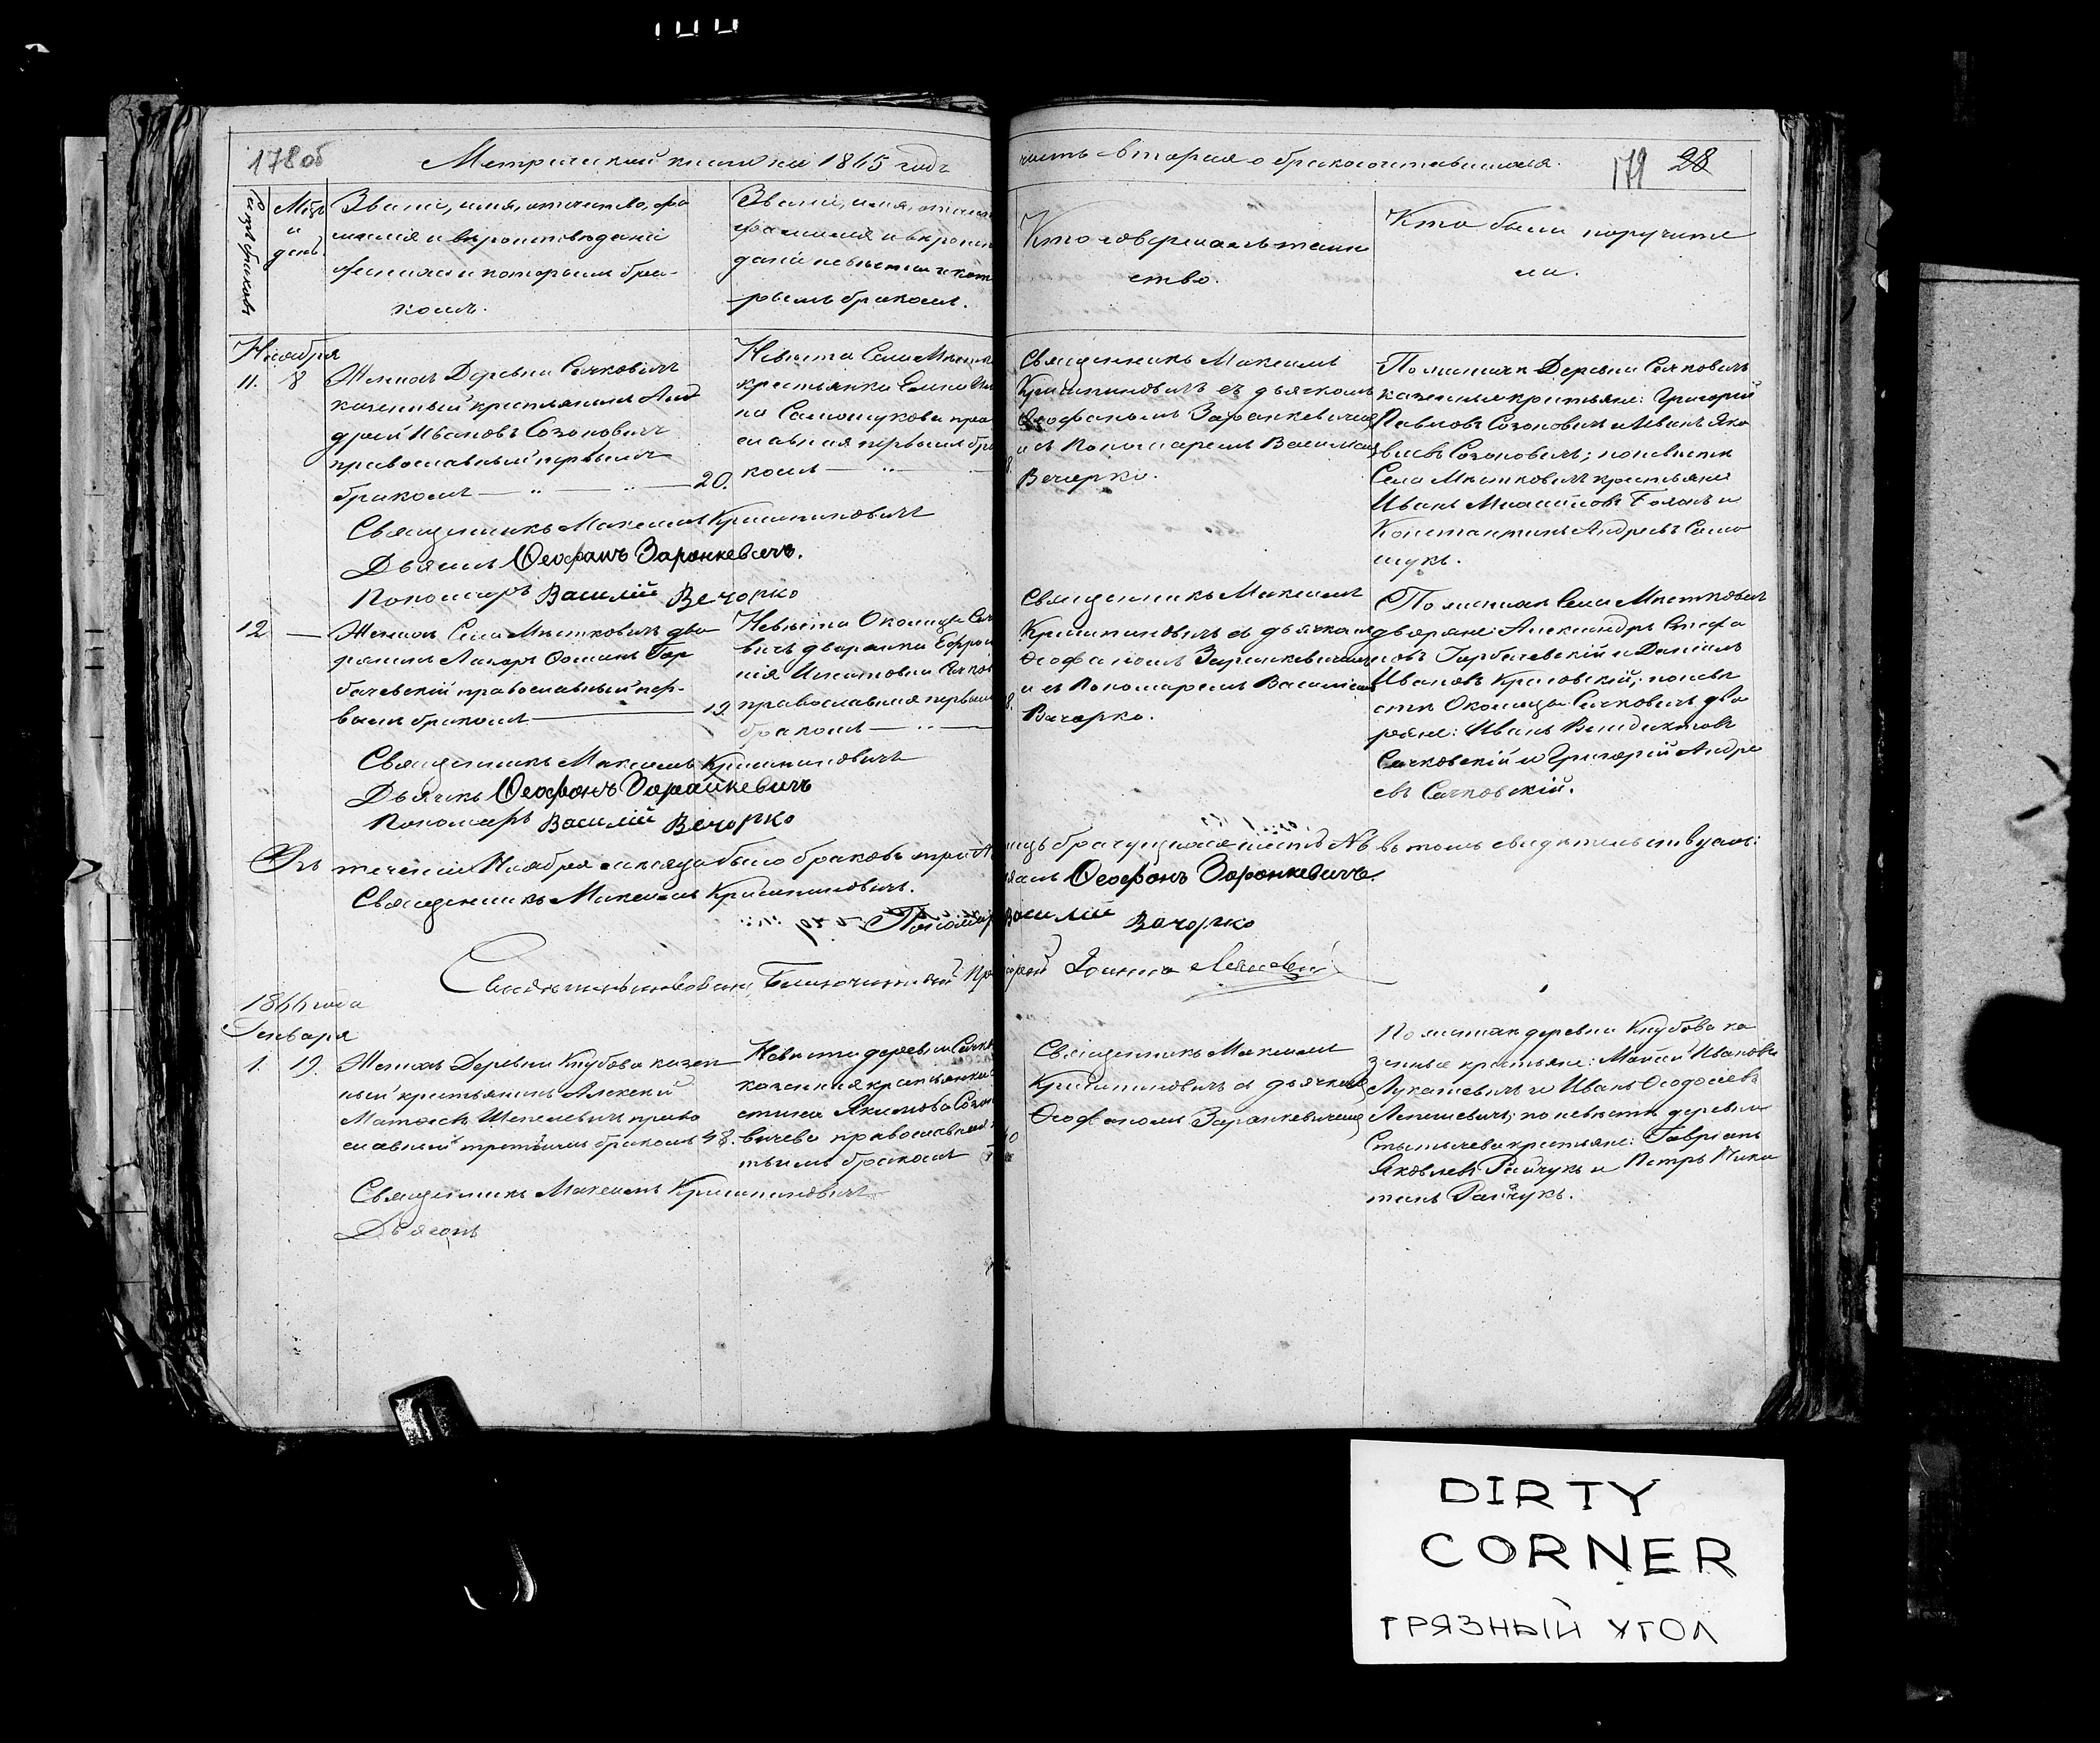 178 об
Метрической книги на 1865 годъ
часть вторая о бракосочетавшихся.
179 28
Счетъ браковъ
Мѣсц. и день.
Званіе, имя, отчество, фа
милія и вѣроисповѣданіе
жениха и которымъ бра-
комъ.
Званіе, имя, отчес
фамилія и вѣроисп
даніе невѣсты и кото
рымъ бракомъ.
Кто совершалъ таин
ство.
Кто были поручите
ли.
Ноября
11. 8
Женихъ Деревни Сачковичъ
казенный крестьянинъ Анд
дрей Ивановъ Созоновичъ
православный первымъ
бракомъ 20.
Невѣста Села
крестьянка
на Самошукова прав
славная первымъ бра
комъ
Священникъ Максимъ
Криштиновичъ съ дьячкомъ
Ѳеофаномъ Заранкевичемъ
и съ Пономаремъ Василіемъ
Вечорко.
По женихѣ Деревни Сачковичъ
казенные крестьяне: Григорій
Павловъ Созоновичъ и Иванъ Яко
влевъ Созоновичъ; по невѣстѣ
Села Мѣстковичъ крестьяне
Иванъ
Константинъ Андреевъ Само
шукъ.
Священникъ Максимъ Криштиновичъ
Дьячокъ Ѳеофанъ Заранкевичъ.
Пономарь Василій Вечорко
12
Женихъ Села Мѣстковичъ дво
рянинъ Лазарь Фоминъ Гор
бачевскій православный пер-
вымъ бракомъ 19
Невѣста Околицы Сач
вичъ дворянка Ефроси
нія Игнатовна Сачков
православная первым
бракомъ
Священникъ Максимъ
Криштиновичъ съ дьячкомъ
Ѳеофаномъ Заранкевичемъ
и съ Пономаремъ Василіемъ
Вечорко.
По женихѣ Села Мѣстковичъ
дворяне: Александръ Стефа
новъ Горбачевскій и Даніилъ
Ивановъ Красовскій; по невѣ
стѣ Околицы Сачковичъ дво
ряне: Иванъ Венедиктовъ
Сачковскій и Григорій Андре
евъ Сачковскій.
Священникъ Максимъ Криштиновичъ
Дьячкъ Ѳеофанъ Заранкевичъ
Пономарь Василій Вечорко
Въ теченіи Ноября мѣсяца было браковъ три
въ томъ свидѣтельствуемъ:
Священникъ Максимъ Криштиновичъ.
Ѳеофанъ Заранкевичъ.
Пономарь Василій Вечорко
Свидѣтельствовалъ Благочинный Протоіерей Іоаннъ
1866 года
Генваря
1. 19.
Женихъ Деревни Кнубова казен
ный крестьянинъ Алексѣй
православный третьимъ бракомъ 48.
Невѣста деревни Сачков
казенная крестьянка
Якимова Созон
вичева православная
тьимъ бракомъ
Священникъ Максимъ
Криштиновичъ съ дьячкомъ
Ѳеофаномъ Заранкевичемъ
По женихѣ деревни Кнубова ка
зенные крестьяне: Моисей Ивановъ
Лукашевичъ и Иванъ Ѳеодосіевъ
по невѣстѣ деревни
Стытычева крестьяне: Гавріилъ
Яковлевъ Райчукъ и Петръ Ники
тинъ Райчукъ.
Священникъ Максимъ Криштиновичъ
Дьячокъ
DIRTY
CORNER
ГРЯЗНЫЙ УГОЛ